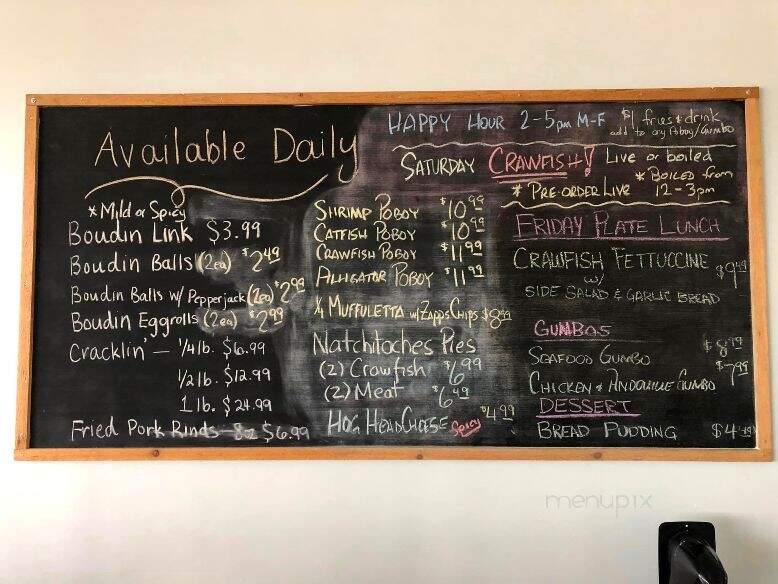 Available Daily
* Mild or Spicy
Boudin Link $3.99
Boudin Balls (2ea) $2.49
Boudin Balls w/ Pepperjack (2ea) $2.99
Boudin Eggrolls (2ea) $2.99
Cracklin' — 1/4 lb. $6.99
1/2 lb. $12.99
1 lb. $24.99
Fried Pork Rinds - 8oz $6.99
SHRIMP POBOY $10.99
CATFISH POBOY $10.99
CRAWFISH POBOY $11.99
ALLIGATOR POBOY $11.99
1/4 MUFFULETTA w/ ZAPPS CHIPS $8.99
Natchitoches Pies
(2) Crawfish $6.99
(2) Meat $6.49
HOG HEAD CHEESE Spicy $4.99
HAPPY HOUR 2-5pm M-F $1 fries & drink
add to any Poboy/Gumbo
SATURDAY CRAWFISH! Live or boiled
* PRE-ORDER LIVE * BOILED from
12-3pm
FRIDAY PLATE LUNCH
CRAWFISH FETTUCCINE $9.49
w/
SIDE SALAD & GARLIC BREAD
GUMBOS
SEAFOOD GUMBO $8.99
CHICKEN & ANDOUILLE GUMBO $7.99
DESSERT
BREAD PUDDING $4.49
menupix